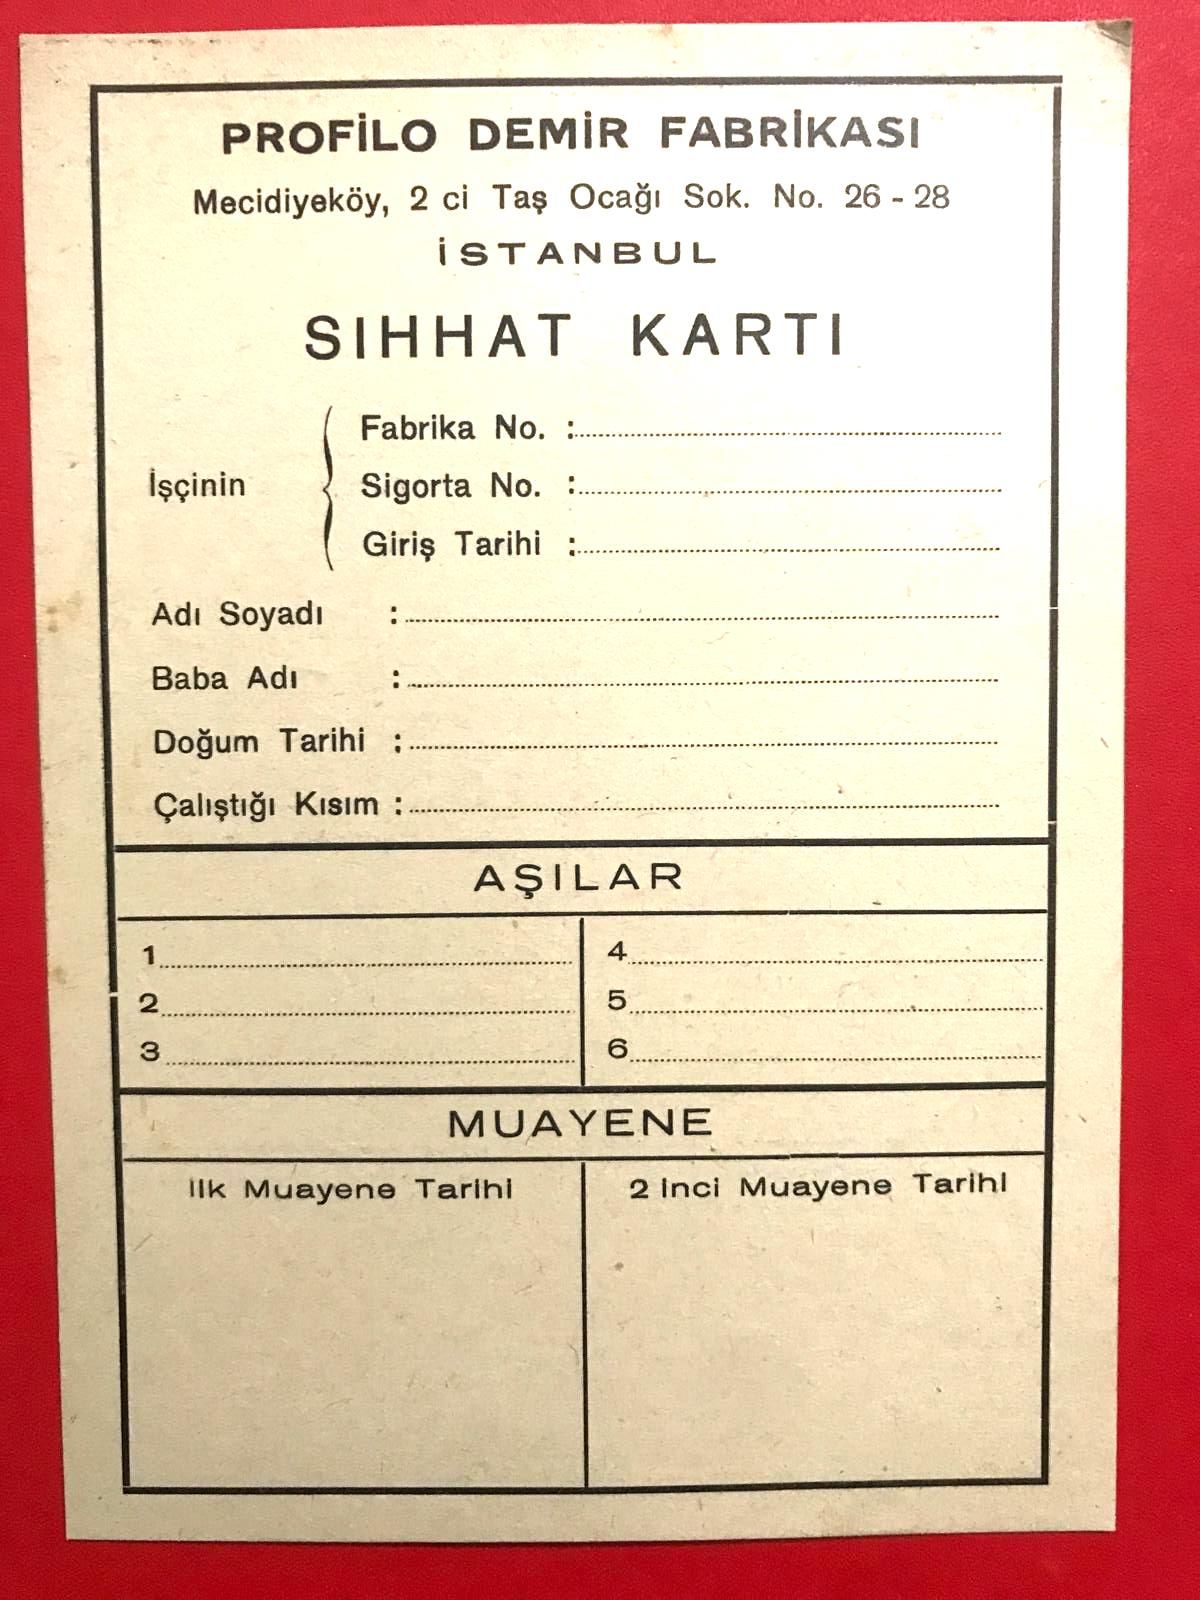 PROFİLO DEMİR FABRİKASI
Mecidiyeköy, 2 ci Taş Ocağı Sok. No. 26 - 28
İSTANBUL
SIHHAT KARTI
İşçinin
Fabrika No. :
Sigorta No. :
Giriş Tarihi :
Adı Soyadı :
Baba Adı :
Doğum Tarihi :
Çalıştığı Kısım :
AŞILAR
1 4
2 5
3 6
MUAYENE
İlk Muayene Tarihi 2 inci Muayene Tarihi